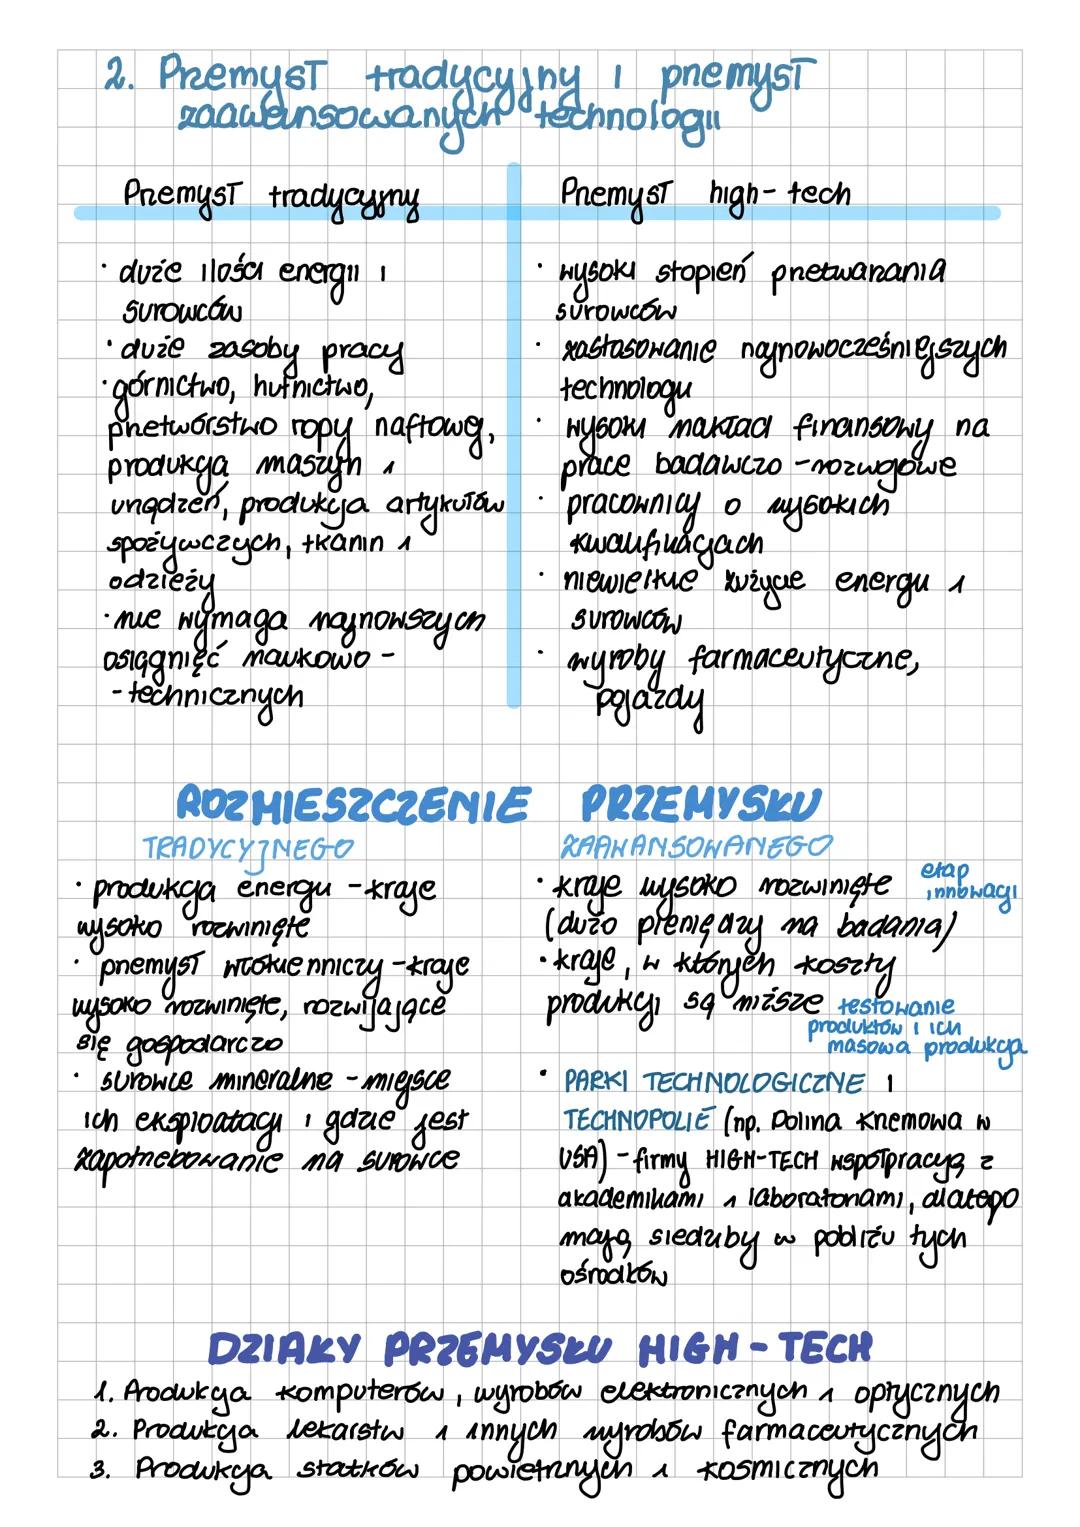 2. Przemysł tradycyjny i przemysł
zaawansowanych technologii
Przemysł tradycyjny
· duże ilości energii i
surowców
· duże zasoby pracy
· górnictwo, hutnictwo,
przetwórstwo ropy naftowej,
produkcja maszyn i
urządzeń, produkcja artykułów
spożywczych, tkanin i
odzieży
· nie wymaga najnowszych
osiągnięć naukowo -
- technicznych
Przemysł high-tech
· wysoki stopień przetwarzania
surowców
· zastosowanie najnowocześniejszych
technologii
· wysoki nakład finansowy na
prace badawczo - rozwojowe
· pracownicy o wysokich
kwalifikacjach
· niewielkie zużycie energii i
surowców
· wyroby farmaceutyczne,
pojazdy
ROZMIESZCZENIE PRZEMYSŁU
TRADYCYJNEGO
· produkcja energii - kraje
wysoko rozwinięte
· przemysł włókienniczy - kraje
wysoko rozwinięte, rozwijające
się gospodarczo
· surowce mineralne - miejsce
ich eksploatacji i gdzie jest
zapotrzebowanie na surowce
ZAAWANSOWANEGO
· kraje wysoko rozwinięte etap
innowacji
(dużo pieniędzy na badania)
· kraje, w których koszty
produkcji są niższe testowanie
produktów i ich
masowa produkcja
· PARKI TECHNOLOGICZNE i
TECHNOPOLIE (np. Dolina Krzemowa w
USA) - firmy HIGH-TECH współpracują z
akademikami i laboratoriami, dlatego
mają siedziby w pobliżu tych
ośrodków
DZIAŁY PRZEMYSŁU HIGH - TECH
1. Produkcja komputerów, wyrobów elektronicznych i optycznych
2. Produkcja lekarstw i innych wyrobów farmaceutycznych
3. Produkcja statków powietrznych i kosmicznych